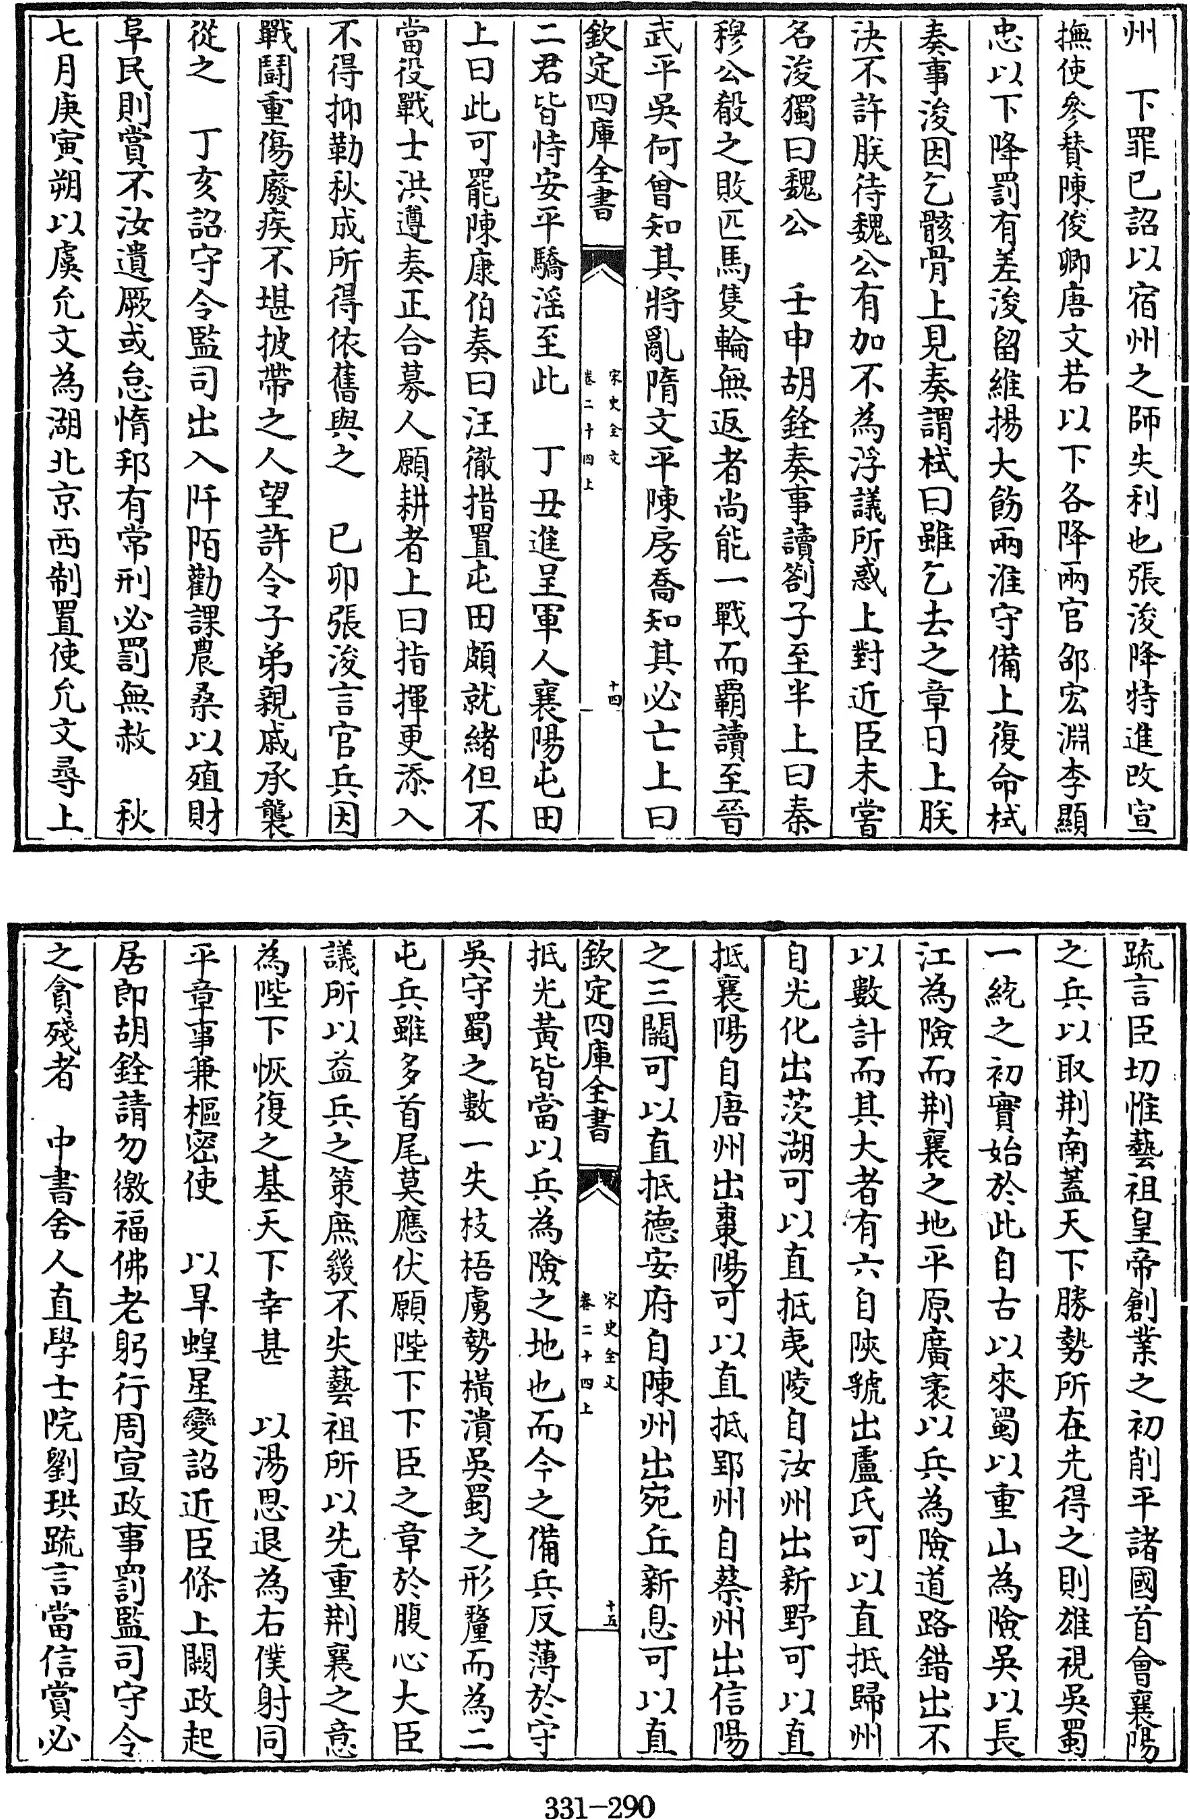 州　下罪已詔以宿州之師失利也張浚降特進改宣
撫使參賛陳俊卿唐文若以下各降兩官邵宏淵李顯
忠以下降罰有差浚留維揚大飭兩淮守備上復命栻
奏事浚因乞骸骨上見奏謂栻曰雖乞去之章日上朕
決不許朕待魏公有加不為浮議所惑上對近臣未嘗
名浚獨曰魏公　壬申胡銓奏事讀劄子至半上曰秦
穆公殽之敗匹馬隻輪無返者尚能一戰而覇讀至晉
武平吳何曾知其將亂隋文平陳房喬知其必亡上曰
欽定四庫全書
宋史全文
卷二十四上
十四
二君皆恃安平驕滛至此　丁丑進呈軍人襄陽屯田
上曰此可罷陳康伯奏曰汪徹措置屯田頗就緒但不
當役戰士洪遵奏正合募人願耕者上曰指揮更添入
不得抑勒秋成所得依舊與之　已卯張浚言官兵因
戰鬪重傷廢疾不堪披帶之人望許令子弟親戚承襲
從之　丁亥詔守令監司出入阡陌勸課農桑以殖財
阜民則賞不汝遺厥或怠惰邦有常刑必罰無赦　秋
七月庚寅朔以虞允文為湖北京西制置使允文尋上
疏言臣切惟藝祖皇帝創業之初削平諸國首會襄陽
之兵以取荆南蓋天下勝勢所在先得之則雄視吳蜀
一統之初實始於此自古以來蜀以重山為險吳以長
江為險而荆襄之地平原廣袤以兵為險道路錯出不
以數計而其大者有六自陜虢出盧氏可以直抵歸州
自光化出茨湖可以直抵夷陵自汝州出新野可以直
抵襄陽自唐州出棗陽可以直抵郢州自蔡州出信陽
之三關可以直抵德安府自陳州出宛丘新息可以直
欽定四庫全書
宋史全文
卷二十四上
十五
抵光黃皆當以兵為險之地也而今之備兵反薄於守
吳守蜀之數一失枝梧虜勢橫潰吳蜀之形釐而為二
屯兵雖多首尾莫應伏願陛下下臣之章於腹心大臣
議所以益兵之策庶幾不失藝祖所以先重荆襄之意
為陛下恢復之基天下幸甚　以湯思退為右僕射同
平章事兼樞密使　以旱蝗星變詔近臣條上闕政起
居郎胡銓請勿徼福佛老躬行周宣政事罰監司守令
之貪殘者　中書舍人直學士院劉珙疏言當信賞必
331-290